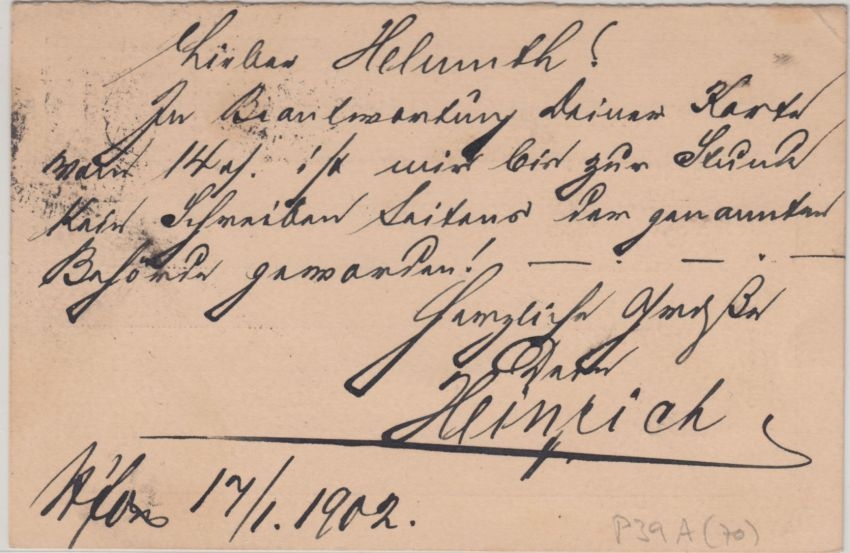 Lieber Helmuth!
In Beantwortung Deiner Karte
vom 14 ds. ist mir bis zur Stunde
kein Schreiben seitens der genannten
Behörde geworden! — . — . —
Herzliche Grüße
Dein
Heinrich
17/1. 1902.
P39A(70)